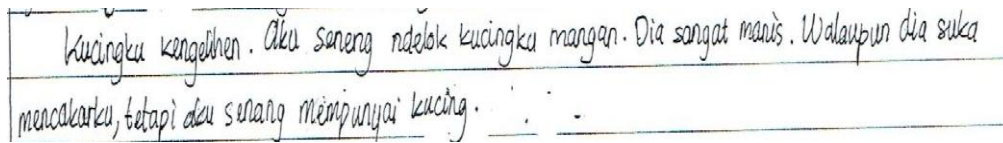 kucingku kengelihen. Aku seneng ndelok kucingku mangan. Dia sangat manis. Walaupun dia suka
mencakarku, tetapi aku senang mempunyai kucing.